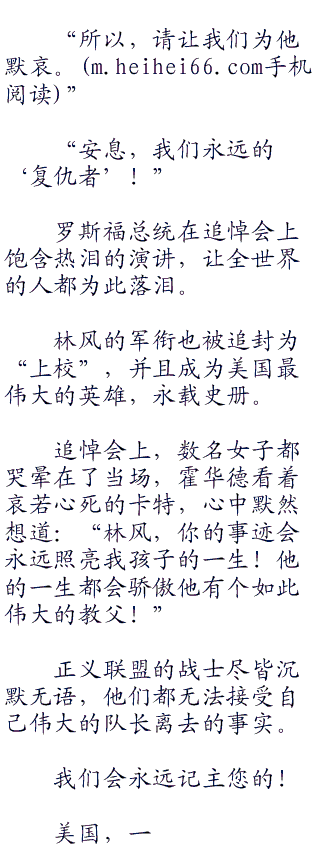 “所以，请让我们为他
默哀。(m.heihei66.com手机
阅读)”
“安息，我们永远的
‘复仇者’！”
罗斯福总统在追悼会上
饱含热泪的演讲，让全世界
的人都为此落泪。
林风的军衔也被追封为
“上校”，并且成为美国最
伟大的英雄，永载史册。
追悼会上，数名女子都
哭晕在了当场，霍华德看着
哀若心死的卡特，心中默然
想道：“林风，你的事迹会
永远照亮我孩子的一生！他
的一生都会骄傲他有个如此
伟大的教父！”
正义联盟的战士尽皆沉
默无语，他们都无法接受自
己伟大的队长离去的事实。
我们会永远记主您的！
美国，一